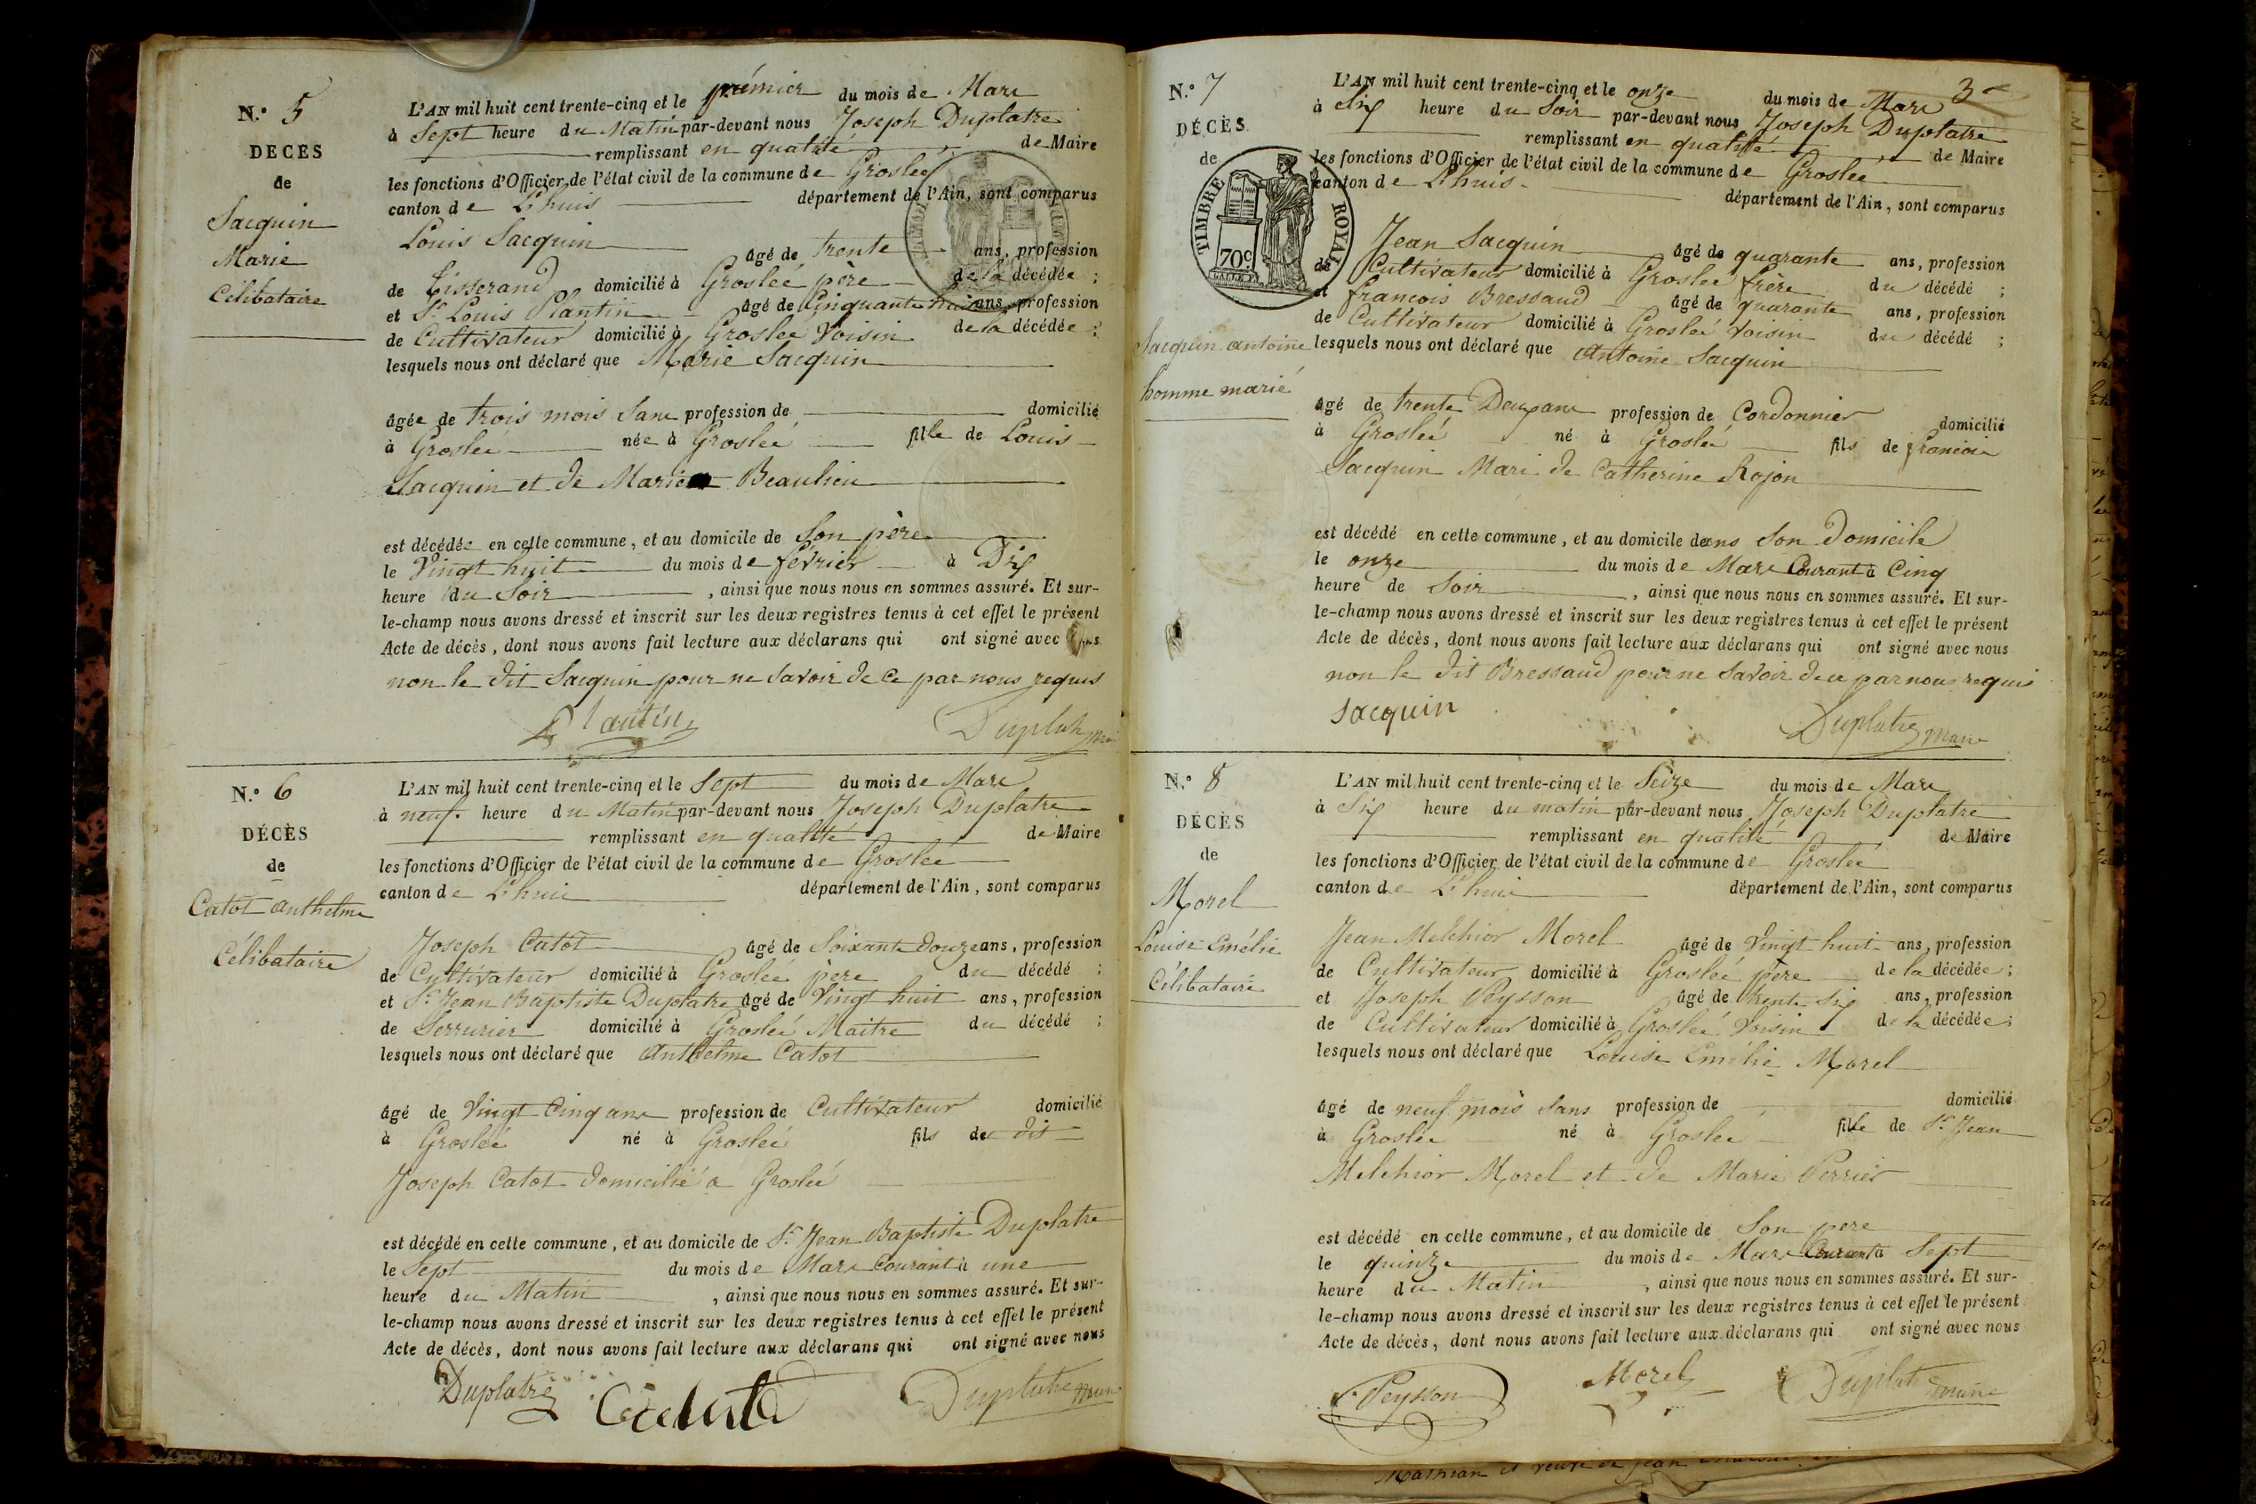 N.° 5
DÉCÈS
de
Sacquin
Marie
Célibataire
L'AN mil huit cent trente-cinq et le prémier du mois de Mars
à Sept heure du Matin par-devant nous Joseph Duplatre
remplissant en qualité de Maire
les fonctions d'Officier de l'état civil de la commune de Groslée
canton de L'huis département de l'Ain, sont comparus
Louis Sacquin âgé de trente ans, profession
de tisserand domicilié à Groslée père de la décédée ;
et Sr Louis Plantin âgé de Cinquante trois ans, profession
de Cultivateur domicilié à Groslée Voisin de la décédée ;
lesquels nous ont déclaré que Marie Sacquin
âgée de trois mois Sans profession de domicilié
à Groslée née à Groslée fille de Louis
Sacquin et de Marie Beaulieu
est décédée en cette commune, et au domicile de Son père
le Vingt huit du mois de février à Dix
heure du Soir , ainsi que nous nous en sommes assuré. Et sur-
le-champ nous avons dressé et inscrit sur les deux registres tenus à cet effet le présent
Acte de décès, dont nous avons fait lecture aux déclarans qui ont signé avec nous
non le dit Sacquin pour ne savoir de ce par nous requis
Plantin Duplatre
N.° 6
DÉCÈS
de
Catot anthelme
Célibataire
L'AN mil huit cent trente-cinq et le Sept du mois de Mars
à neuf heure du Matin par-devant nous Joseph Duplatre
remplissant en qualité de Maire
les fonctions d'Officier de l'état civil de la commune de Groslée
canton de L'huis département de l'Ain, sont comparus
Joseph Catot âgé de Soixante douze ans, profession
de Cultivateur domicilié à Groslée père du décédé ;
et Sr Jean Baptiste Duplatre âgé de Vingt huit ans, profession
de Serrurier domicilié à Groslée Maitre du décédé ;
lesquels nous ont déclaré que Anthelme Catot
âgé de Vingt Cinq ans profession de Cultivateur domicilié
à Groslée né à Groslée fils de dit
Joseph Catot domicilié a Groslée
est décédé en cette commune, et au domicile de Sr Jean Baptiste Duplatre
le Sept du mois de Mars Courant à une
heure du Matin , ainsi que nous nous en sommes assuré. Et sur-
le-champ nous avons dressé et inscrit sur les deux registres tenus à cet effet le présent
Acte de décès, dont nous avons fait lecture aux déclarans qui ont signé avec nous
Duplatre Duplatre maire
3e
N.° 7
DÉCÈS
de
TIMBRE ROYAL
70c
Sacquin antoine
homme marié
L'AN mil huit cent trente-cinq et le onze du mois de Mars
à Six heure du Soir par-devant nous Joseph Duplatre
remplissant en qualité de Maire
les fonctions d'Officier de l'état civil de la commune de Groslée
canton de L'huis département de l'Ain, sont comparus
Jean Sacquin âgé de quarante ans, profession
de Cultivateur domicilié à Groslée frère du décédé ;
et francois Bressaud âgé de quarante ans, profession
de Cultivateur domicilié à Groslée Voisin du décédé ;
lesquels nous ont déclaré que Antoine Sacquin
âgé de trente Deux ans profession de Cordonnier domicilié
à Groslée né à Groslée fils de francois
Sacquin Mari de Catherine Rojon
est décédé en cette commune, et au domicile dans Son Domicile
le onze du mois de Mars Courant à Cinq
heure de Soir , ainsi que nous nous en sommes assuré. Et sur-
le-champ nous avons dressé et inscrit sur les deux registres tenus à cet effet le présent
Acte de décès, dont nous avons fait lecture aux déclarans qui ont signé avec nous
non le dit Bressaud pour ne savoir de ce par nous requis
Sacquin Duplatre maire
N.° 8
DÉCÈS
de
Morel
Louise Emélie
Célibataire
L'AN mil huit cent trente-cinq et le Seize du mois de Mars
à Six heure du matin par-devant nous Joseph Duplatre
remplissant en qualité de Maire
les fonctions d'Officier de l'état civil de la commune de Groslée
canton de L'huis département de l'Ain, sont comparus
Jean Melchior Morel âgé de Vingt huit ans, profession
de Cultivateur domicilié à Groslée père de la décédée ;
et Joseph Peysson âgé de trente Six ans, profession
de Cultivateur domicilié à Groslée Voisin de la décédée ;
lesquels nous ont déclaré que Louise Emélie Morel
âgé de neuf mois Sans profession de domicilié
à Groslée né à Groslée fille de Sr Jean
Melchior Morel et de Marie Perrier
est décédé en cette commune, et au domicile de Son pere
le quinze du mois de Mars Courant à Sept
heure du Matin , ainsi que nous nous en sommes assuré. Et sur-
le-champ nous avons dressé et inscrit sur les deux registres tenus à cet effet le présent
Acte de décès, dont nous avons fait lecture aux déclarans qui ont signé avec nous
Peysson Morel Duplatre maire